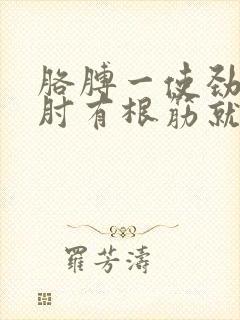 胳膊一使劲
肘有根筋就
羅芳濤